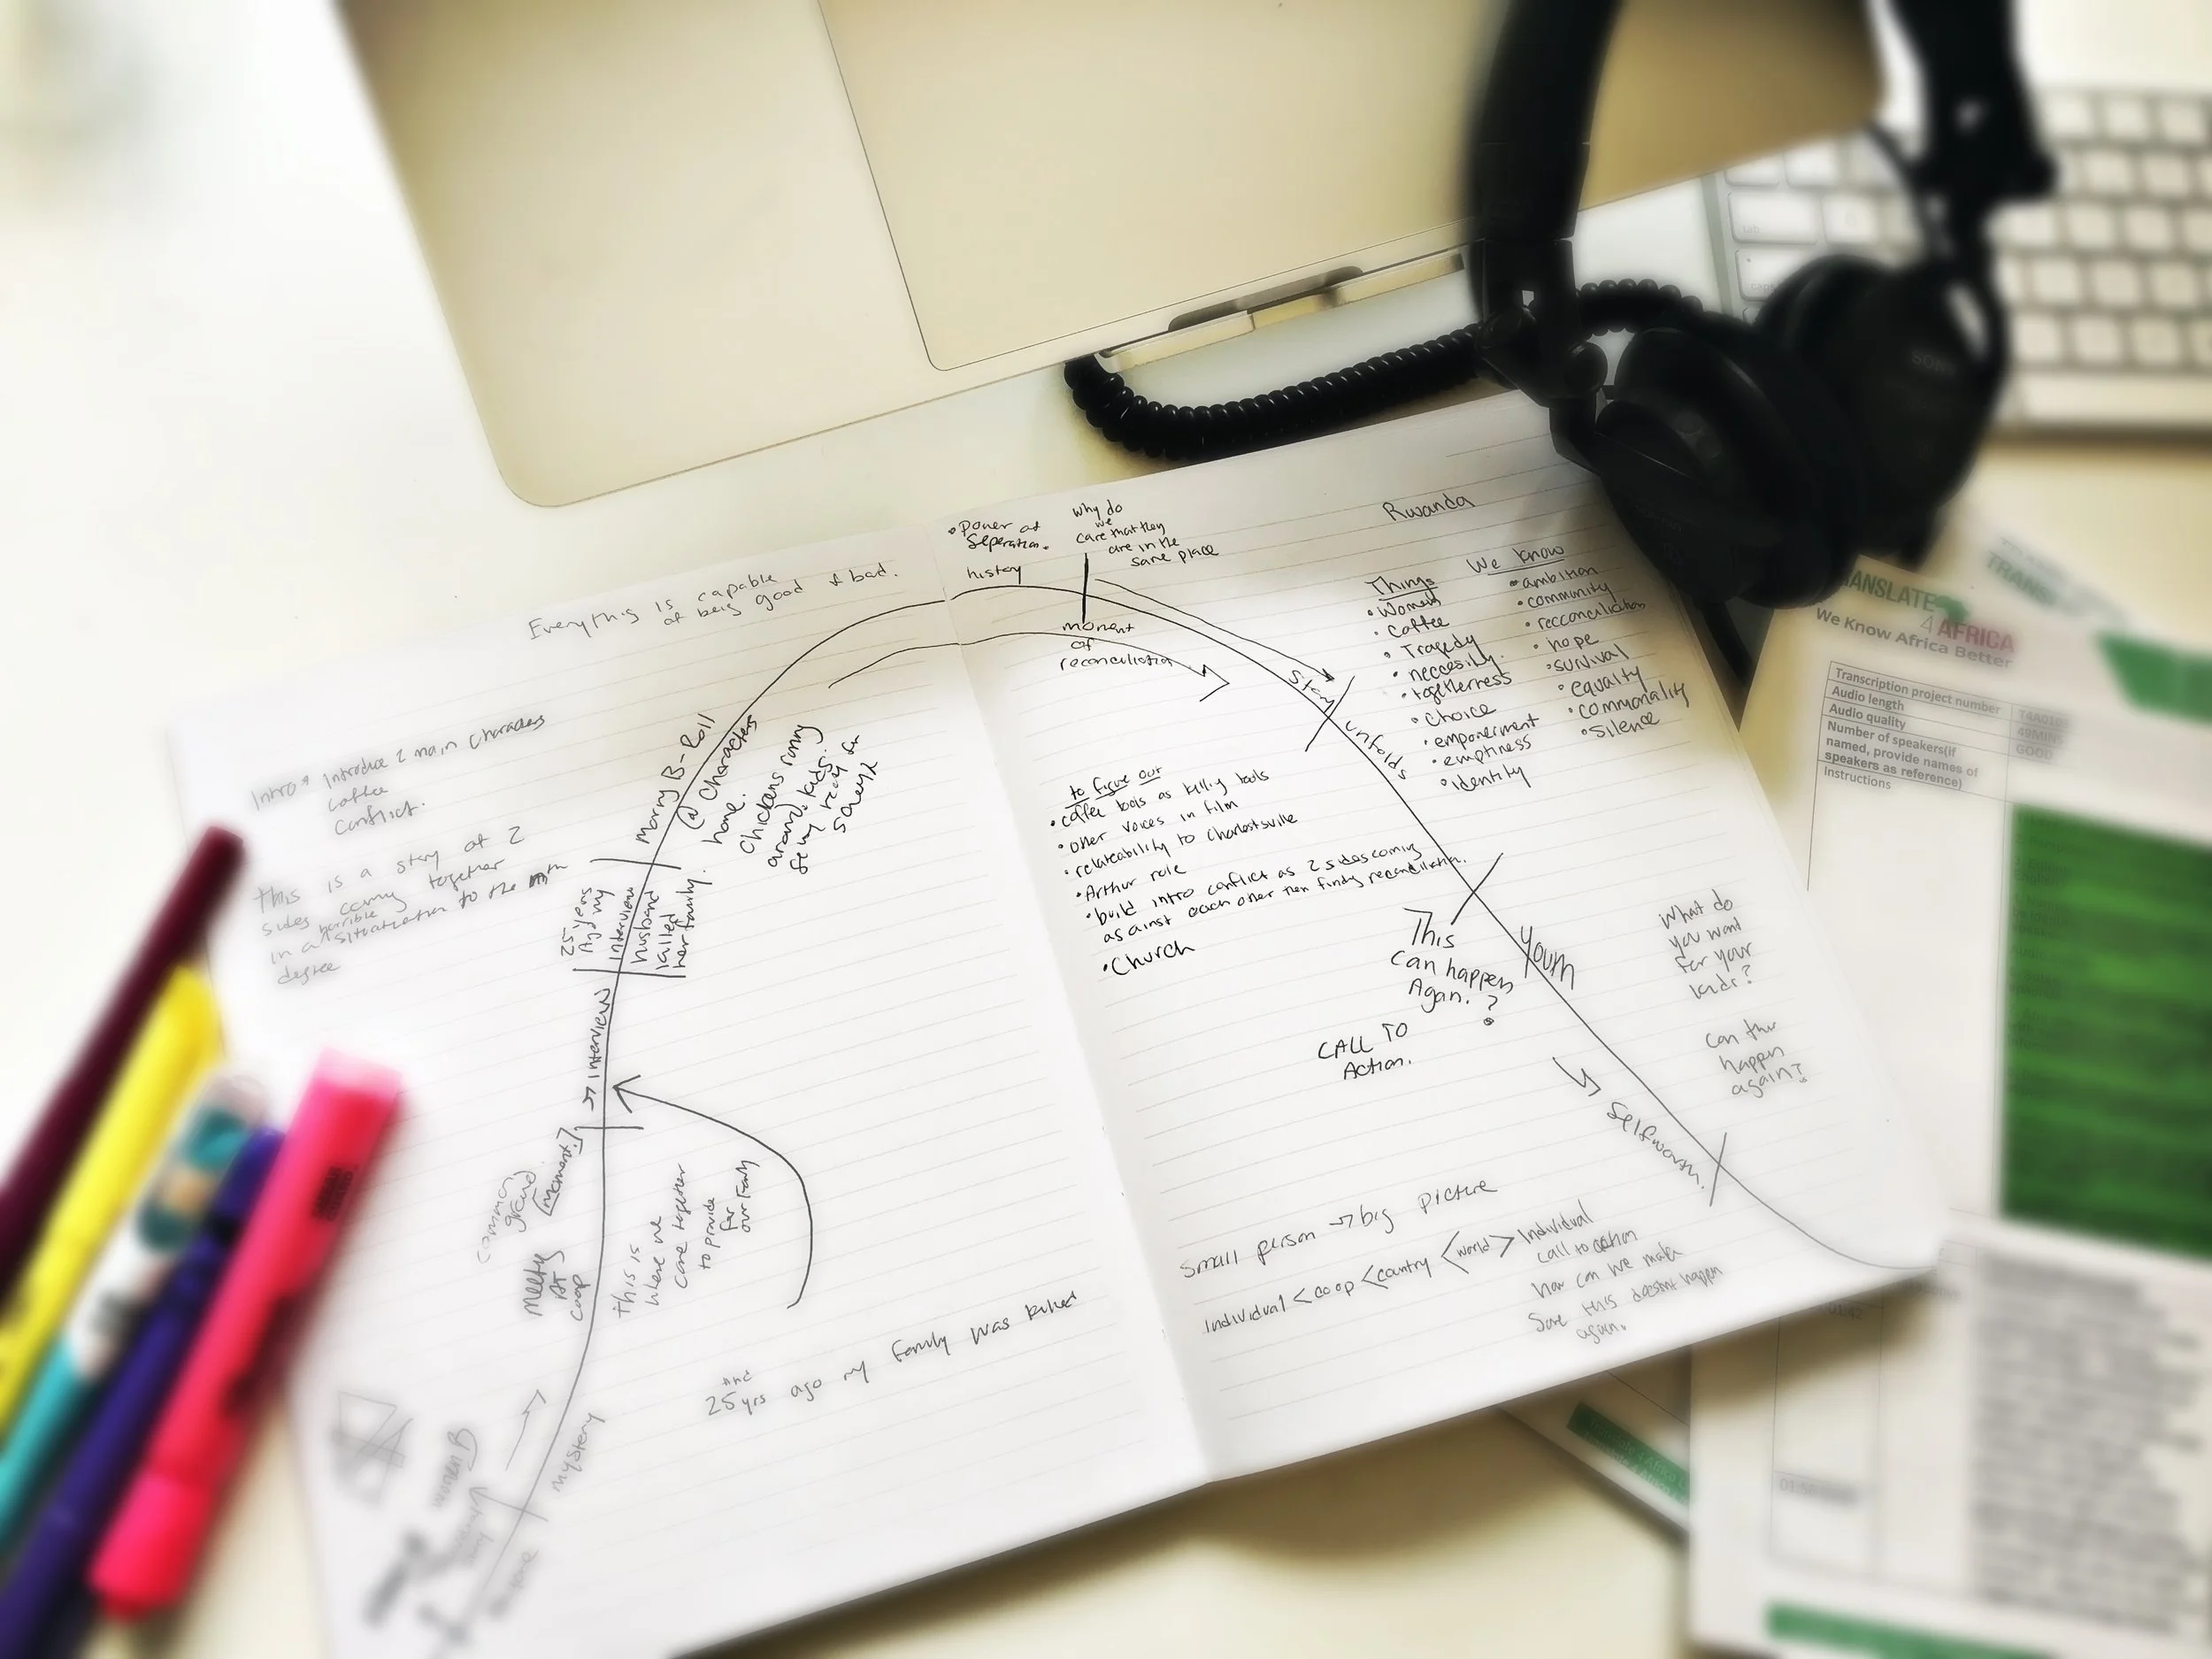 Everything is capable
of being good & bad.
Intro: Introduce 2 main characters
coffee
conflict.
This is a story of 2
sides coming together
in a horrible situation to the nth
degree
morning B-Roll
@ characters
home.
Chickens running
around. kids
getting ready for
25 years
Ago my
Interview
husband
killed
her family.
→ interview
common
ground
[moment]
meeting
At
coop
This is
where we
come together
to provide
for
our family
and
25 yrs ago my family was killed
mystery
women
• Power of
Seperation.
history
why do
we
care that they
are in the
same place
moment
of
reconciliation
Story
unfolds
Rwanda
Things We know
• Women
• Coffee
• Tragedy
• neccesity.
• togetherness
• Choice
• empowerment
• emptiness
• identity
• ambition
• community
• recconciliation
• hope
• survival
• equality
• commonality
• Silence
to figure out
• coffee tools as killing tools
• other voices in film
• relateability to Charlottsville
• Arthur role
• build intro conflict as 2 sides coming
against each other then finding reconciliation.
• Church
This
can happen
Again. ?
CALL TO
Action.
Youth
What do
you want
for your
kids?
Can this
happen
again?
→ Selfworth.
Small person → big picture
Individual < coop < country < world > Individual
call to action
how can we make
sure this doesnt happen
again.
TRANSLATE
4 AFRICA
We Know Africa Better
Transcription project number
Audio length
49MINS
Audio quality
GOOD
Number of speakers(if
named, provide names of
speakers as reference)
Instructions
SONY
tab